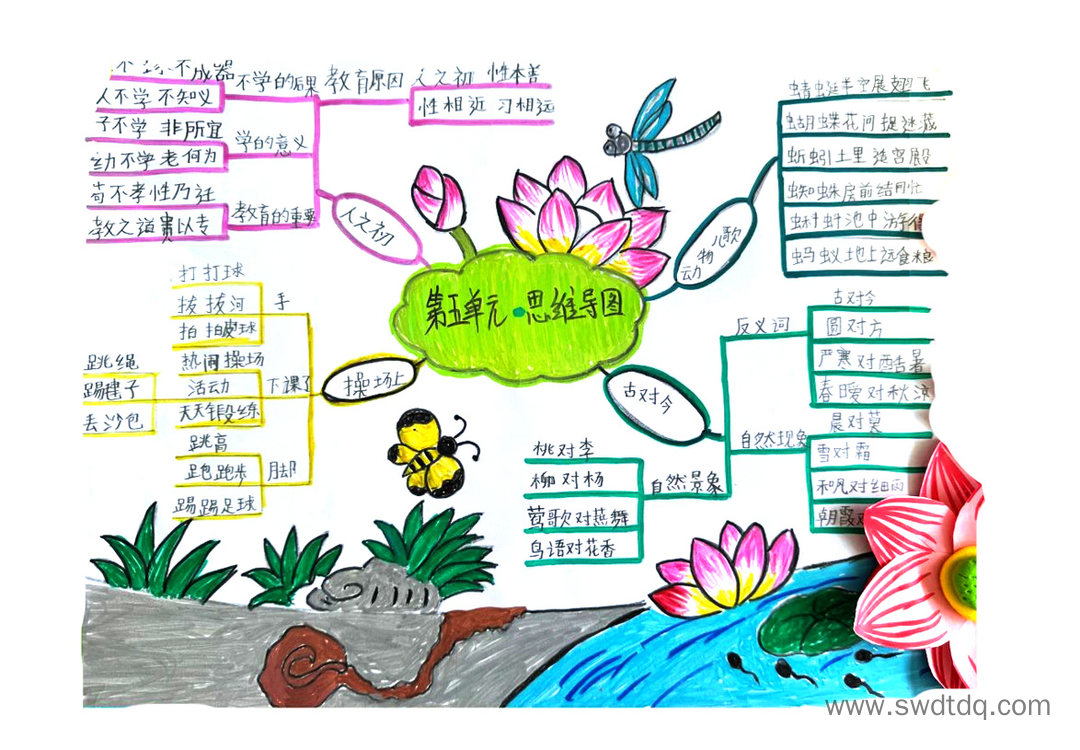 第五单元·思维导图
人之初
教育原因
人之初 性本善
性相近 习相远
不学的后果
不成器
人不学 不知义
学的意义
子不学 非所宜
幼不学 老何为
教育的重要
苟不孝性乃迁
教之道贵以专
动物儿歌
蜻蜓半空展翅飞
蝴蝶花间捉迷藏
蚯蚓土里造宫殿
蜘蛛房前结网忙
蝌蚪池中游
蚂蚁地上运食粮
操场上
手
打 打球
拔 拔河
拍 拍皮球
下课了
热闹操场
活动
天天锻练
跳绳
踢毽子
丢沙包
脚
跳高
跑跑步
踢踢足球
古对今
反义词
古对今
圆对方
严寒对酷暑
春暖对秋凉
自然现象
晨对暮
雪对霜
和风对细雨
朝霞对
自然景象
桃对李
柳对杨
莺歌对燕舞
鸟语对花香
www.swdtdq.com